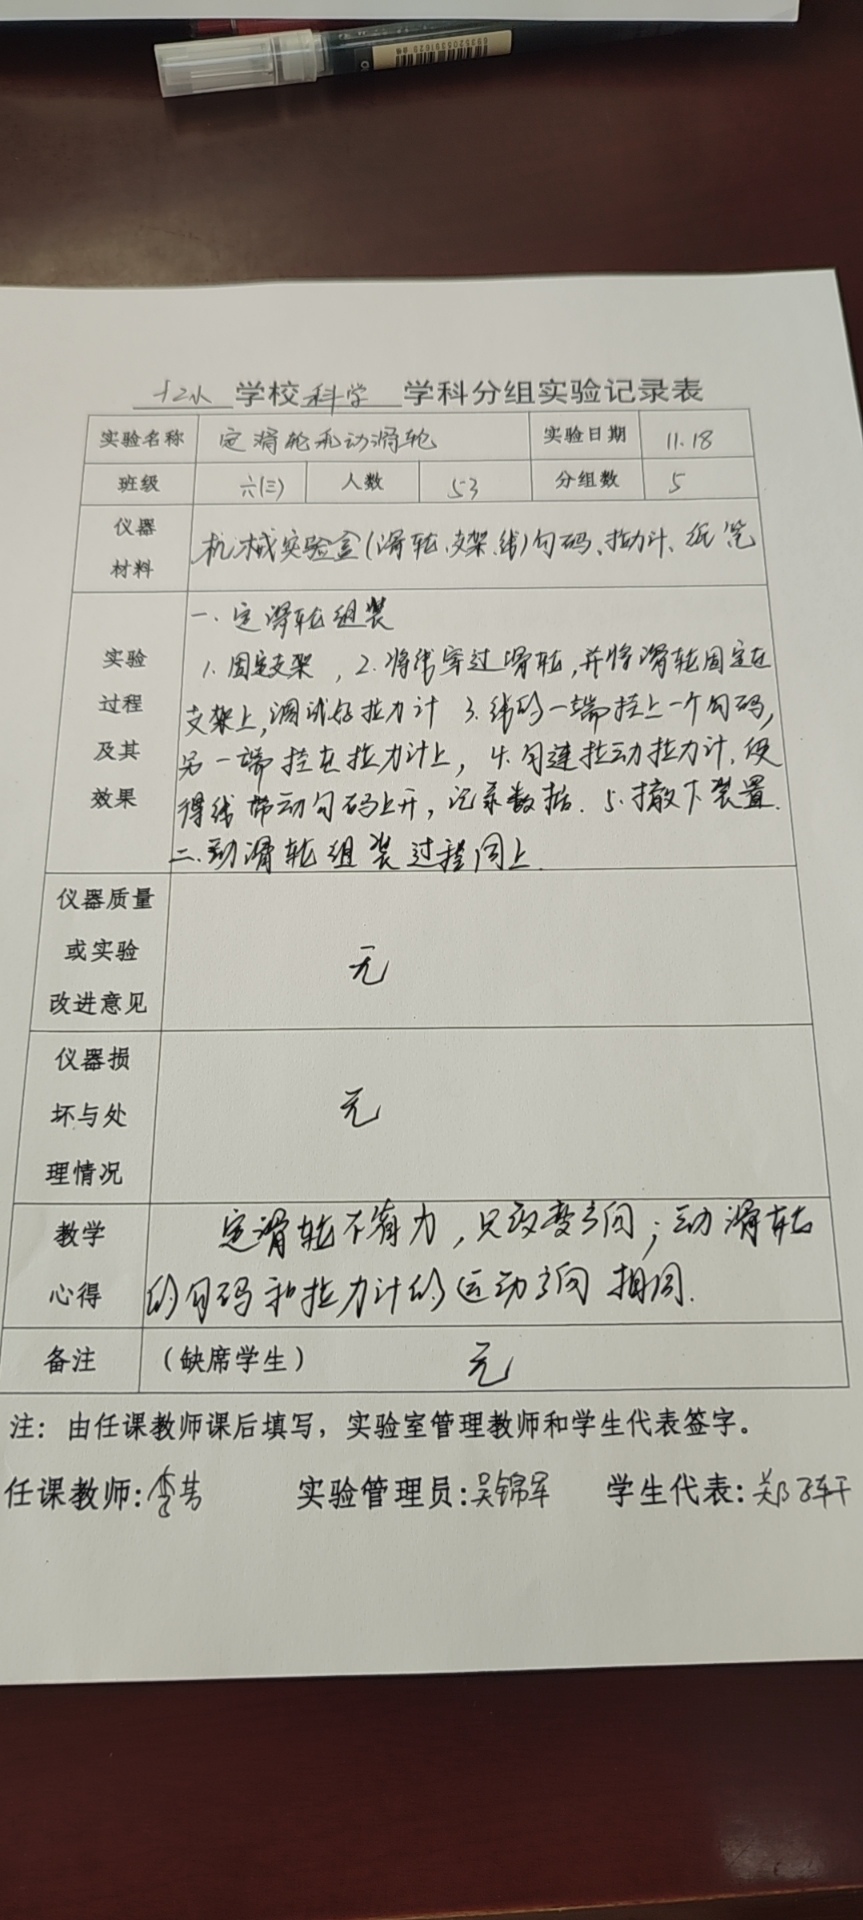 十二小 学校 科学 学科分组实验记录表
实验名称 定滑轮和动滑轮 实验日期 11.18
班级 六(三) 人数 53 分组数 5
仪器材料 机械实验盒(滑轮、支架、线)勾码、拉力计、纸笔
实验过程及其效果
一、定滑轮组装
1. 固定支架，2. 将线穿过滑轮，并将滑轮固定在
支架上，调试好拉力计 3. 线的一端挂上一个勾码，
另一端挂在拉力计上，4. 匀速拉动拉力计，使
得线带动勾码上升，记录数据. 5. 撤下装置.
二、动滑轮组装过程同上.
仪器质量或实验改进意见 无
仪器损坏与处理情况 无
教学心得
定滑轮不省力，只改变方向；动滑轮
的勾码和拉力计的运动方向相同.
备注 （缺席学生） 无
注：由任课教师课后填写，实验室管理教师和学生代表签字。
任课教师: 实验管理员:吴锦军 学生代表:郑子轩